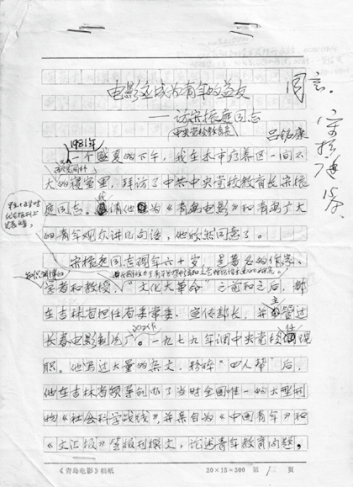 电影应成为青年的益友
同意.
——访宋振庭同志
中央党校教育长
吕铭康
1981年
一个盛夏的下午，我在本市疗养区一间不
大的寝室里，拜访了中共中央党校教育长宋振
庭同志。请他为《青岛电影》和青岛广大
的青年观众讲几句话，他欣然同意了。
宋振庭同志现年六十岁，是著名的作家、
学者和教授。"文化大革命"之前和之后，都
在吉林省担任省委常委、宣传部长，并主管过
长春电影制片厂。一九七九年调中央党校任现
职。他写过大量的杂文，粉碎"四人帮"后，
他在吉林省领导创办了当时全国唯一的大型刊
物《社会科学战线》，并亲自为《中国青年》和
《文汇报》等报刊撰文，论述青年教育问题，
《青岛电影》稿纸 20×15=300 第1页